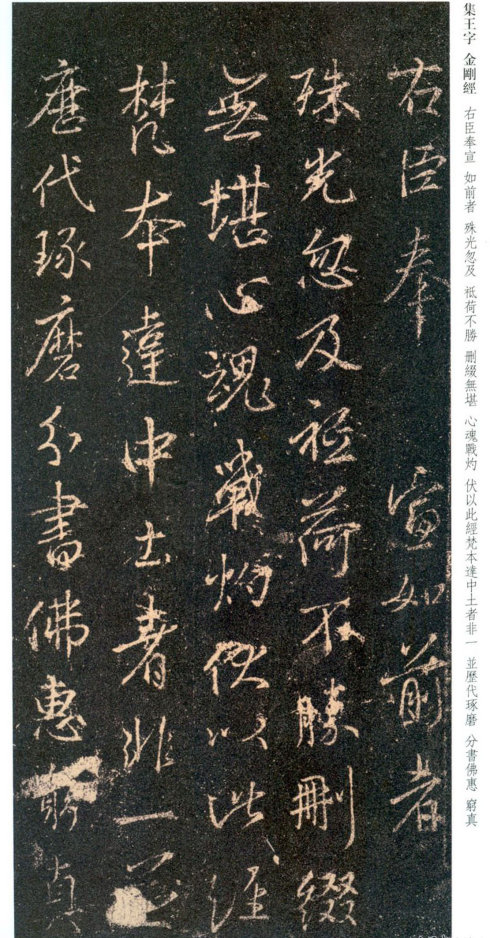 集王字 金剛經 右臣奉宣 如前者 殊光忽及 祗荷不勝 刪綴無堪 心魂戰灼 伏以此經梵本達中土者非一 並歷代琢磨 分書佛惠 窮真
右臣奉 宣如前者
殊光忽及祗荷不勝刪綴
無堪心魂戰灼伏以此經
梵本達中土者非一並
歷代琢磨分書佛惠窮真